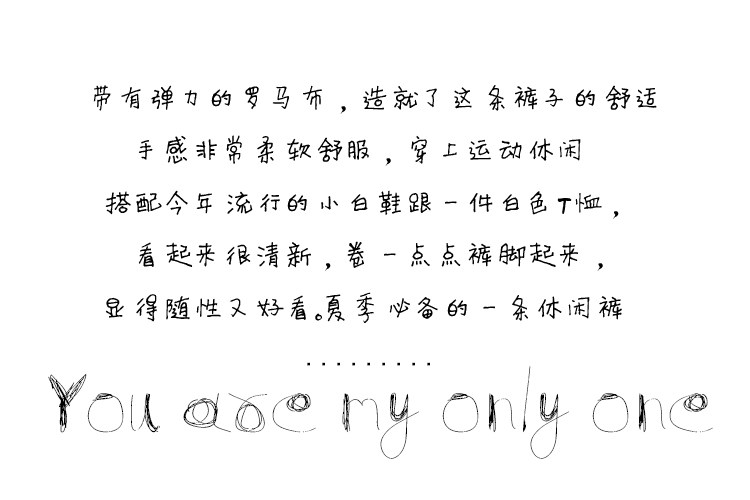 带有弹力的罗马布，造就了这条裤子的舒适
手感非常柔软舒服，穿上运动休闲
搭配今年流行的小白鞋跟一件白色T恤，
看起来很清新，卷一点点裤脚起来，
显得随性又好看。夏季必备的一条休闲裤
.........
You are my only one